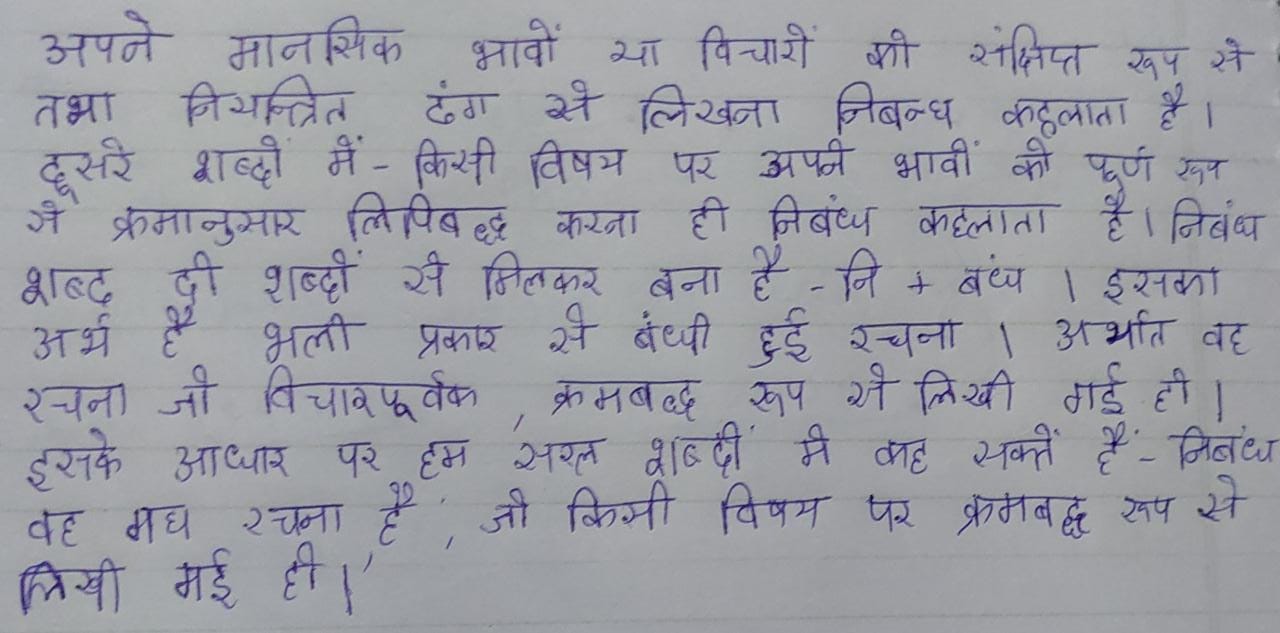 अपने मानसिक भावों या विचारों को संक्षिप्त रूप से
तथा नियन्त्रित ढंग से लिखना निबन्ध कहलाता है।
दूसरे शब्दों में - किसी विषय पर अपने भावों को पूर्ण रूप
से क्रमानुसार लिपिबद्ध करना ही निबंध कहलाता है। निबंध
शब्द दो शब्दों से मिलकर बना है - नि + बंध । इसका
अर्थ है भली प्रकार से बंधी हुई रचना । अर्थात वह
रचना जो विचारपूर्वक , क्रमबद्ध रूप से लिखी गई हो।
इसके आधार पर हम सरल शब्दों में कह सकतें हैं - निबंध
वह गद्य रचना है , जो किसी विषय पर क्रमबद्ध रूप से
लिखी गई हो।'